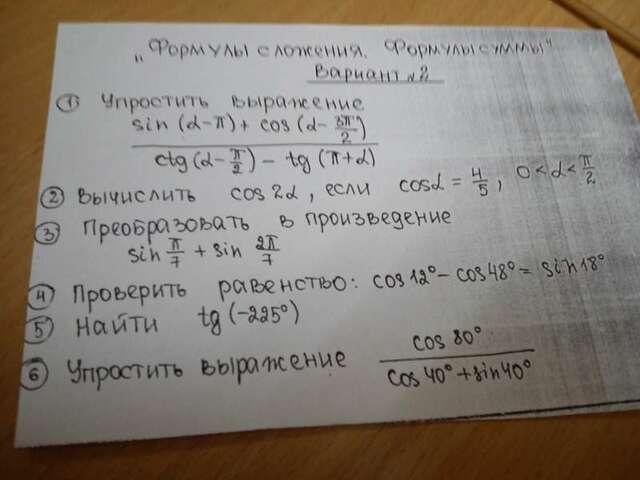 „Формулы сложения. Формулы суммы"
Вариант №2
① Упростить выражение
sin (α-π) + cos (α- 3π/2)
ctg (α- π/2) - tg (π+α)
② Вычислить cos 2α, если cos α = 4/5, 0 < α < π/2
③ Преобразовать в произведение
sin π/7 + sin 2π/7
④ Проверить равенство: cos 12° - cos 48° = sin 18°
⑤ Найти tg (-225°)
⑥ Упростить выражение cos 80° / cos 40° + sin 40°